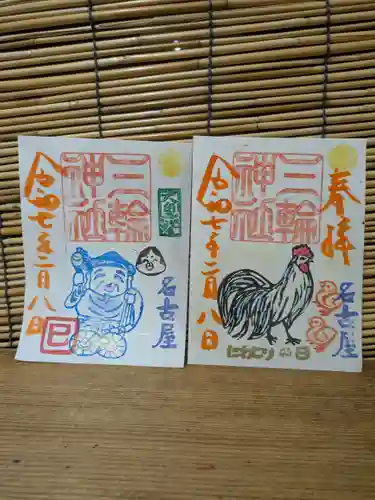 三輪
神社
令和七年二月八日
名古屋
巳
奉拝
三輪
神社
令和七年二月八日
名古屋
にわとりの日